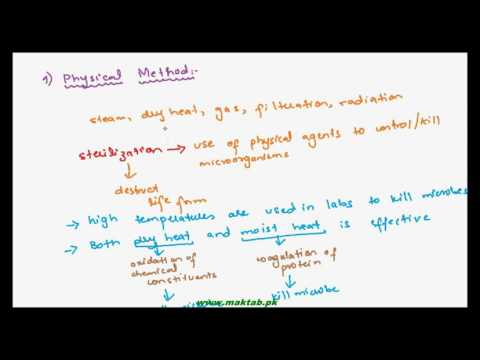 1) Physical Method:-
steam, dry heat, gas, filteration, radiation
sterilization → use of physical agents to control/kill
microorganisms
destruct
life form
→ high temperatures are used in labs to kill microbes
→ Both dry heat and moist heat is effective
oxidation of
chemical
constituents
coagulation of
protein
kill microbe
www.maktab.pk